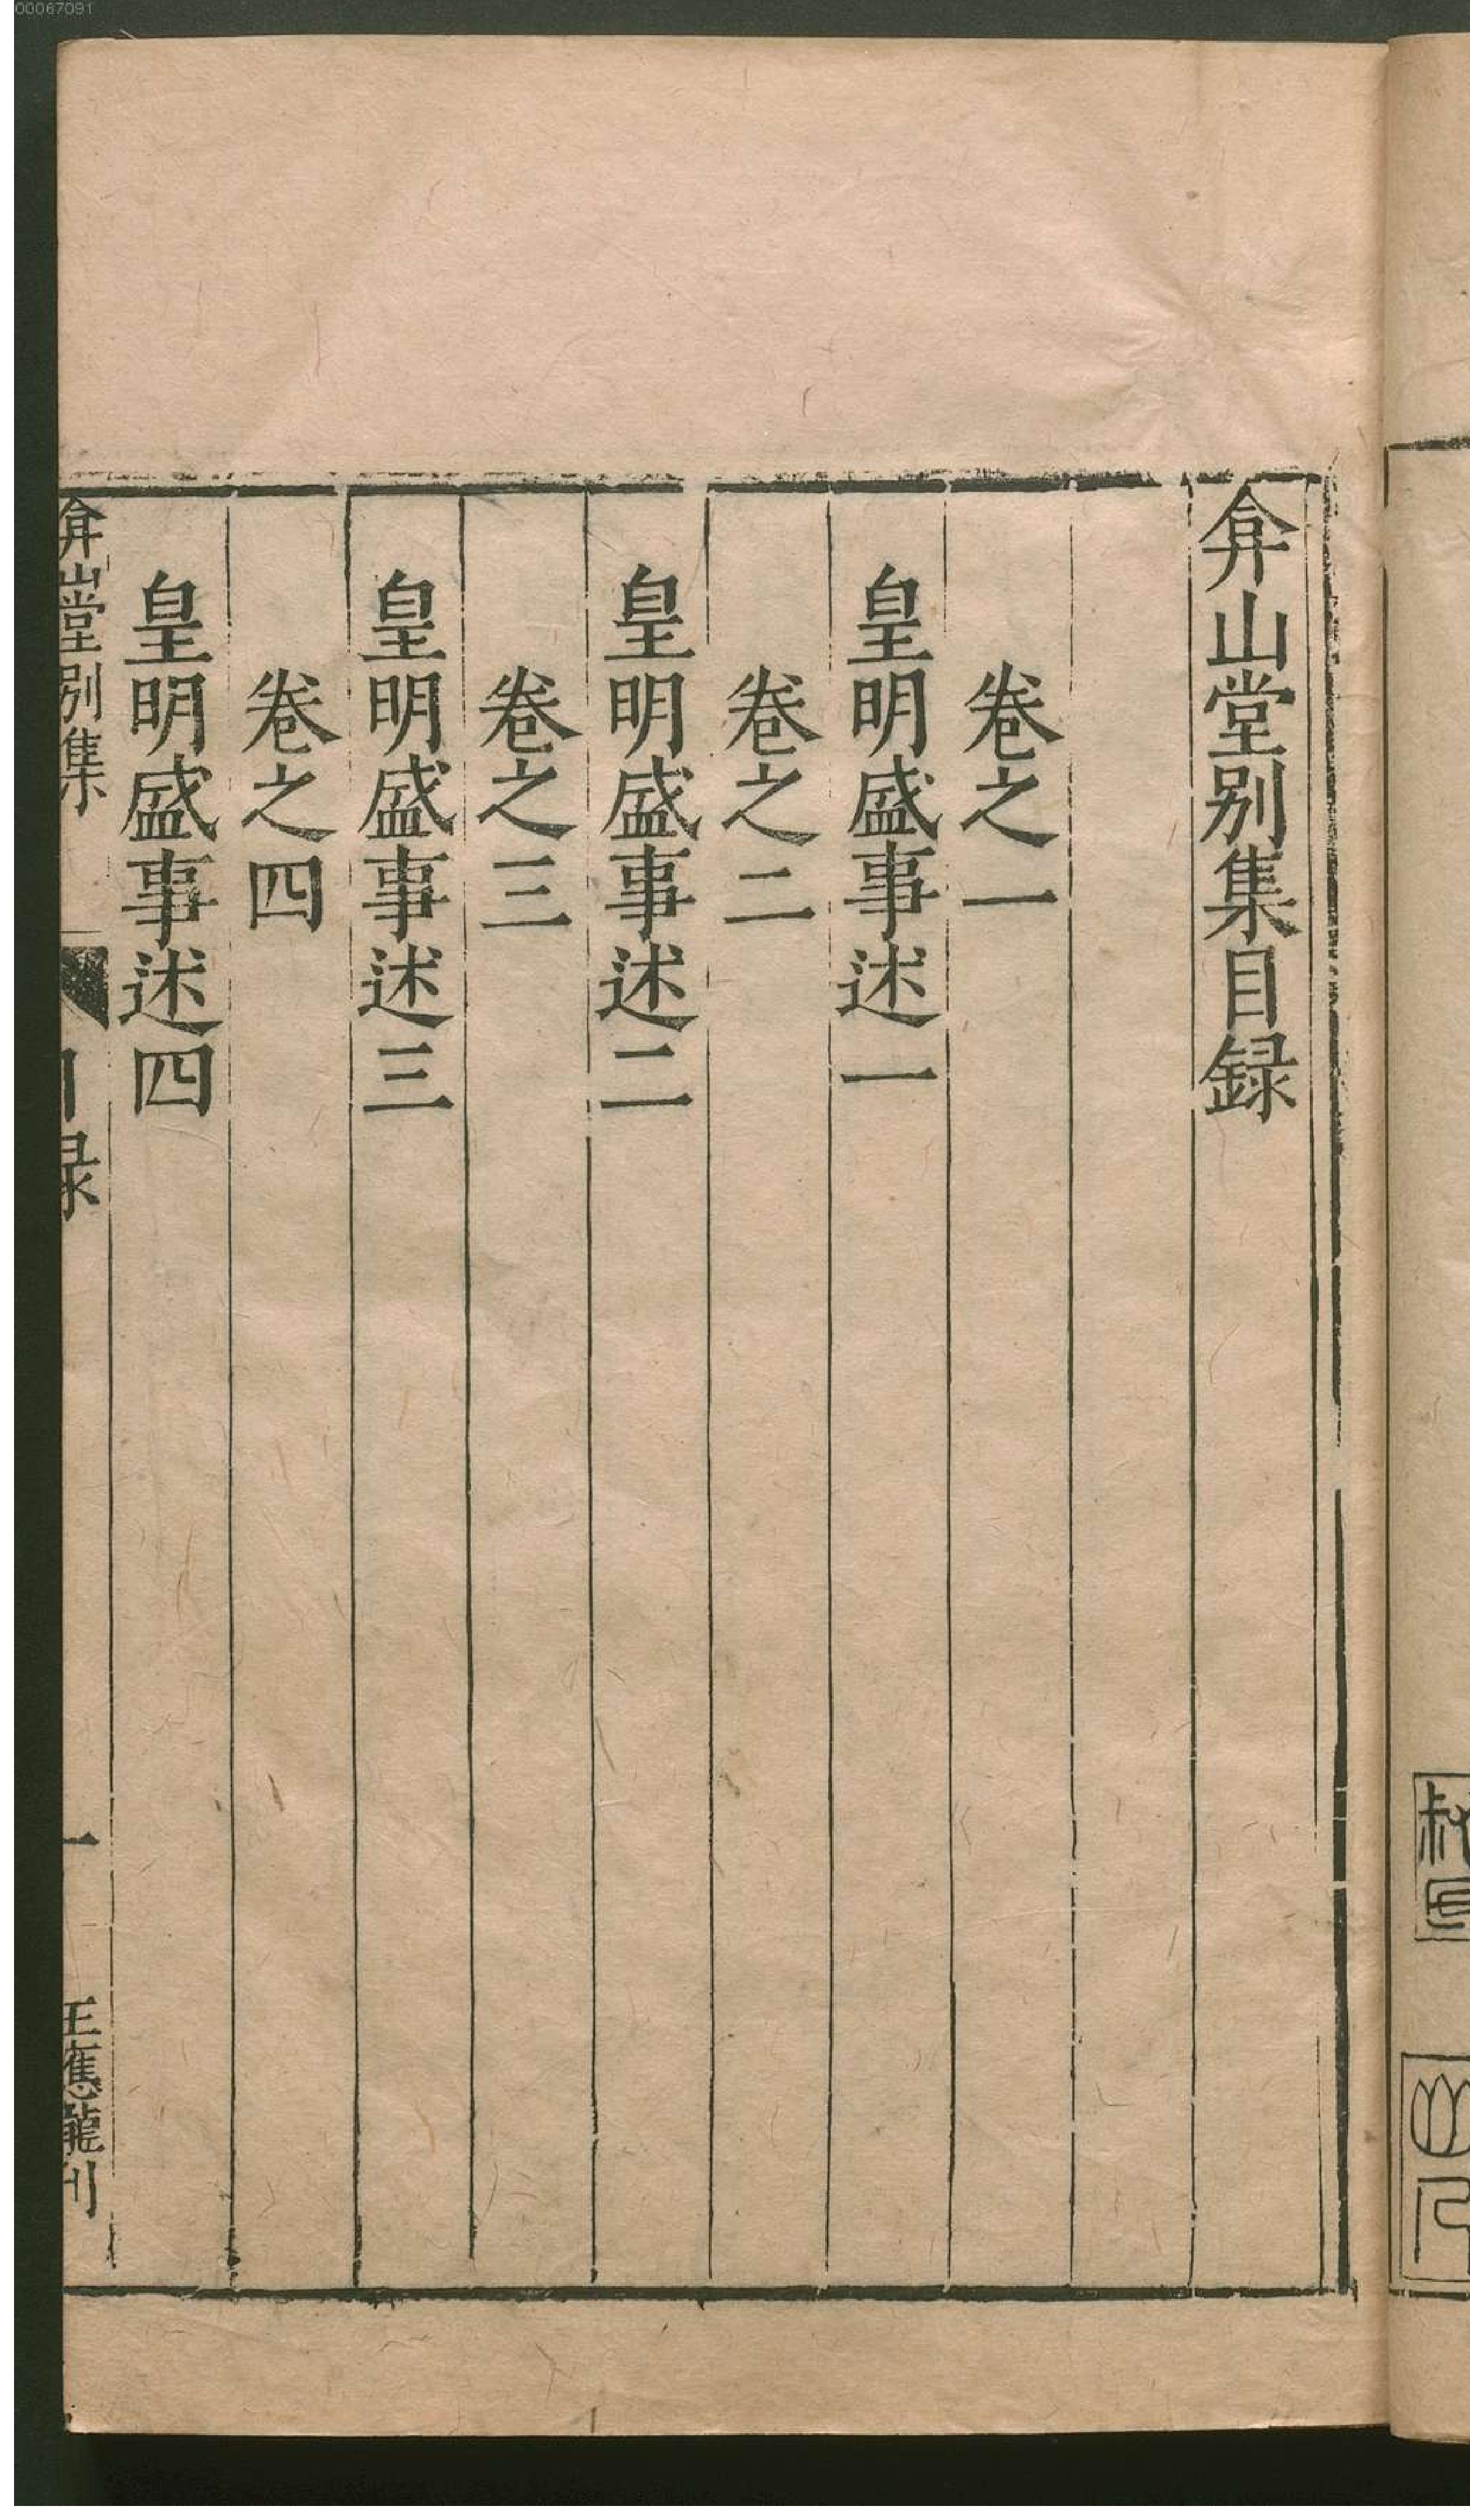 弇山堂别集目録
卷之一
皇明盛事述一
卷之二
皇明盛事述二
卷之三
皇明盛事述三
卷之四
皇明盛事述四
弇山堂别集
目録
一
王應龍刊
00067091